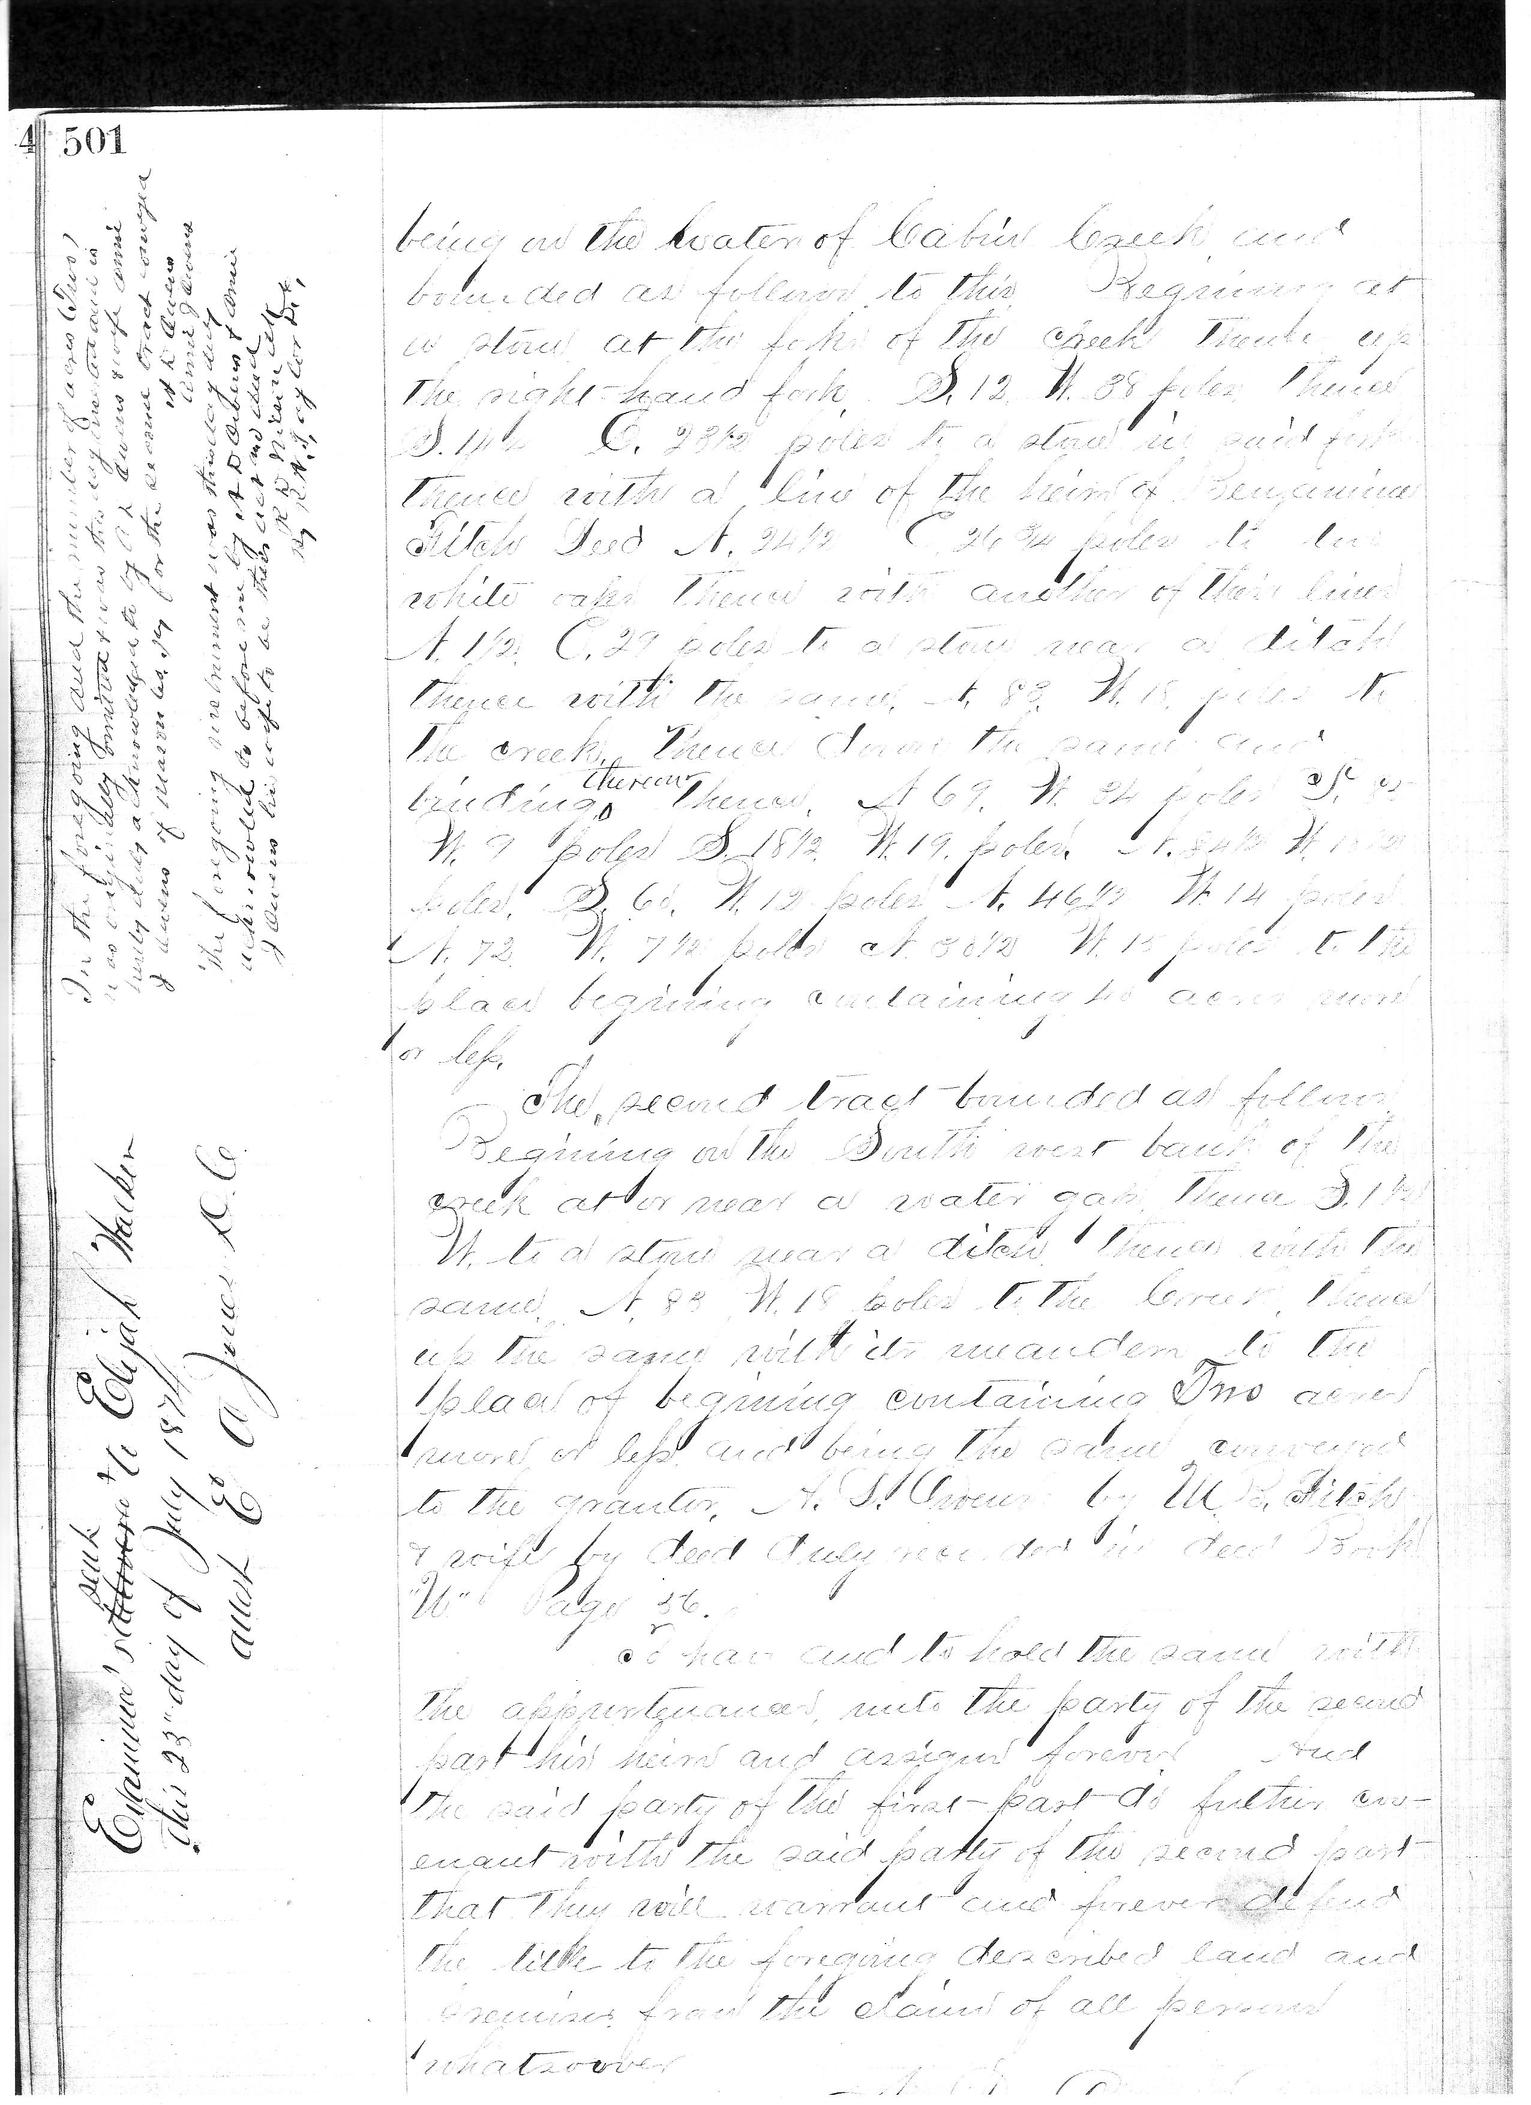 501
being on the water of Cabin Creek and
bounded as follows to this Begining at
a stone at the fork of the creek thence up
the right-hand fork. S. 12 W. 38 poles thence
S. 14½ E. 23½ poles to a stone in said fork
thence with a line of the heirs of Benjamine
Fitch Deed N. 24½ E 26¾ poles to two
white oaks thence with another of their lines
N. 1½ E. 29 poles to a stone near a ditch
thence with the same N. 83 W. 18 poles to
the creek. Thence down the same and
binding thereon Thence N 69. W. 34 poles S.
W. 9 poles S. 18½ W. 19. poles. N. 84½ W.
poles. S. 60. W. 12 poles N. 46½ W. 14 poles
N. 72 W. 7½ poles N. 30½ W. 15 poles to the
place begining containing acres more
or less.
The second tract bounded as follows
Begining on the South west bank of the
creek at or near a water gap thence S. 1½
W. to a stone near a ditch thence with the
same N. 83 W. 18 poles to the Creek, thence
up the same with its meanders to the
place of begining containing Two acres
more or less and being the same conveyed
to the grantor, A. L. Owens by M B. Fitch
& wife by deed duly recorded in deed Book
"W" Page 36.
To have and to hold the same with
the appurtenances, unto the party of the second
part his heirs and assigns forever And
the said party of the first part do futher cov-
enant with the said party of the second part
that they will warrant and forever defend
the title to the foregoing described land and
premises from the claims of all persons
whatsoever
In the foregoing and the number of acres (Two)
was originally omitted & was this
hereby duly acknowledged to by A L Owens & wife Annie
J Owens for the second tract conveyed
A L Owens
Annie J Owens
The foregoing instrument was this day duly
acknowledged to before me by A L Owens & Annie
J Owens his wife to be their act and deed
Examined & sent to Elijah Walker
this 23" day of July 1874
attest E A Jones D. C.